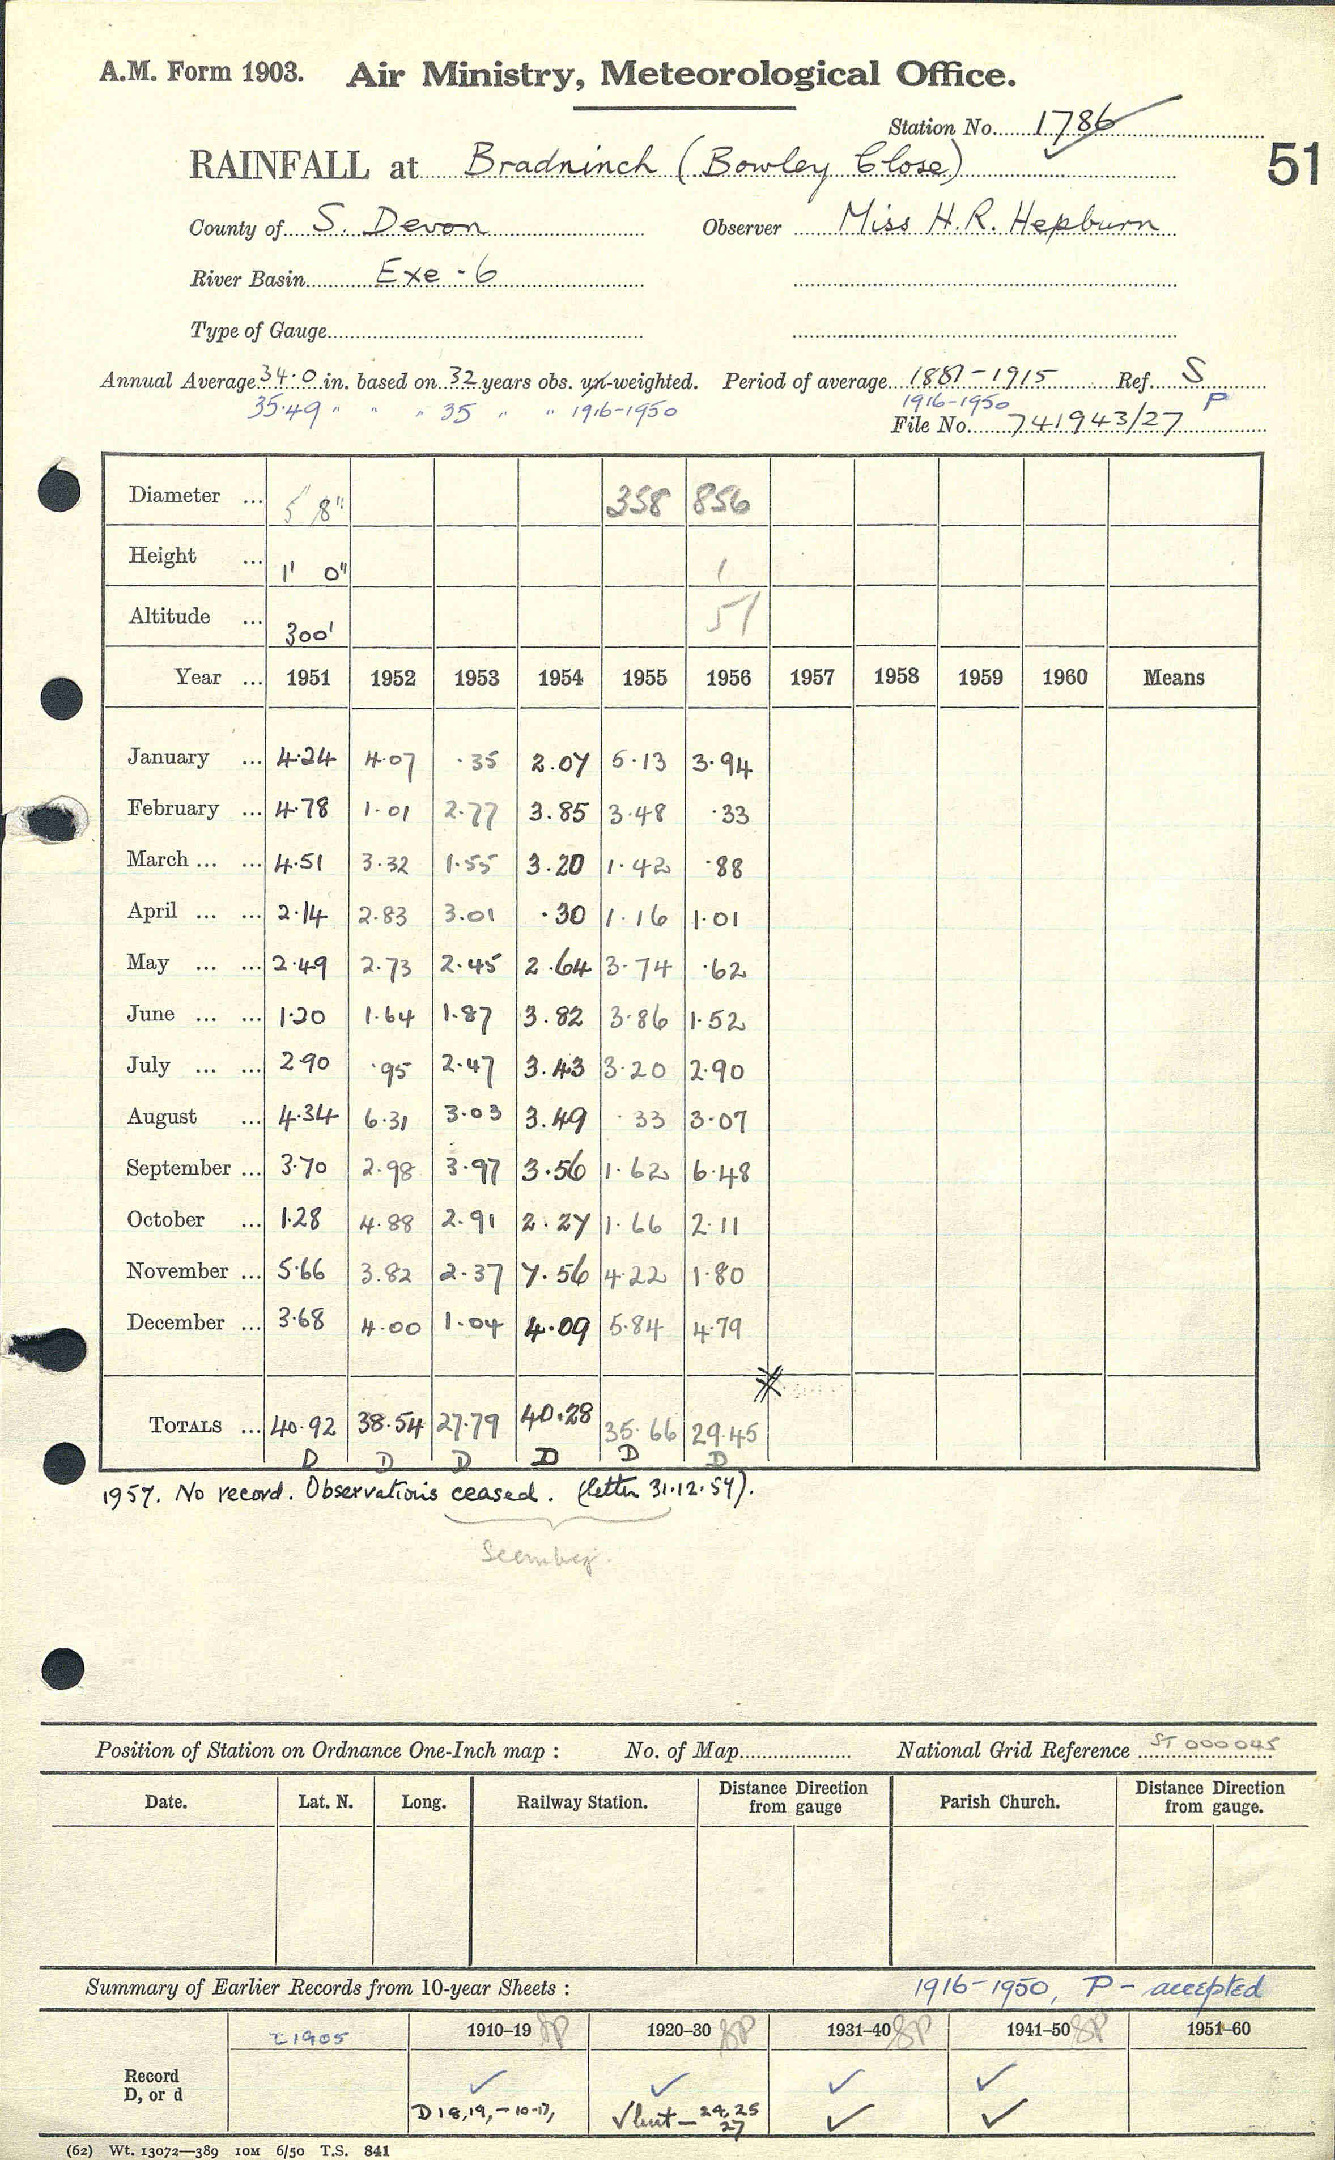 A.M. Form 1903. Air Ministry, Meteorological Office.
Station No. 1786
51
RAINFALL at Bradninch (Bowley Close)
County of S. Devon Observer Miss H.R. Hepburn
River Basin Exe - 6
Type of Gauge
Annual Average 34.0 in. based on 32 years obs. un-weighted. Period of average 1881-1915 Ref. S
35.49 " " " 35 " " 1916-1950 1916-1950 P
File No. 741943/27
Diameter ... 5 8" 358 856
Height ... 1' 0" 1
Altitude ... 300' 51
Year ... 1951 1952 1953 1954 1955 1956 1957 1958 1959 1960 Means
January ... 4.24 4.07 .35 2.07 5.13 3.94
February ... 4.78 1.01 2.77 3.85 3.48 .33
March ... ... 4.51 3.32 1.55 3.20 1.42 .88
April ... ... 2.14 2.83 3.01 .30 1.16 1.01
May ... ... 2.49 2.73 2.45 2.64 3.74 .62
June ... ... 1.20 1.64 1.87 3.82 3.86 1.52
July ... ... 2.90 .95 2.47 3.43 3.20 2.90
August ... 4.34 6.31 3.03 3.49 .33 3.07
September ... 3.70 2.98 3.97 3.56 1.62 6.48
October ... 1.28 4.88 2.91 2.27 1.66 2.11
November ... 5.66 3.82 2.37 7.56 4.22 1.80
December ... 3.68 4.00 1.04 4.09 5.84 4.79
TOTALS ... 40.92 38.54 27.79 40.28 35.66 29.45
D D D D D D
1957. No record. Observations ceased. (letter 31.12.57).
Position of Station on Ordnance One-Inch map : No. of Map National Grid Reference ST 000045
Date. Lat. N. Long. Railway Station. Distance from gauge Direction Parish Church. Distance from gauge. Direction
Summary of Earlier Records from 10-year Sheets : 1916-1950, P - accepted
1905 1910-19 1920-30 1931-40 1941-50 1951-60
Record
D, or d
D 18,19, - 10-17, ✓ but - 24, 25
27
(62) Wt. 13072—389 10M 6/50 T.S. 841